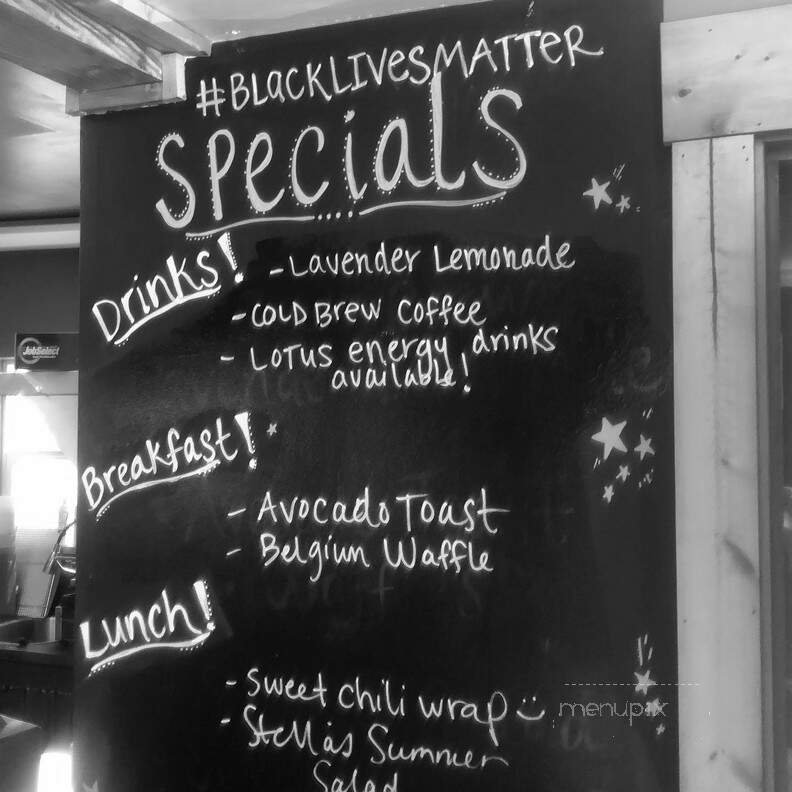 #BLACKLIVESMATTER
SPECIALS
Drinks! - Lavender Lemonade
- COLD BREW COFFEE
- LOTUS energy drinks
available!
JobSelect
Breakfast!
- Avocado Toast
- Belgium Waffle
Lunch!
- Sweet chili wrap
- Stellas Summer
Salad
menupix